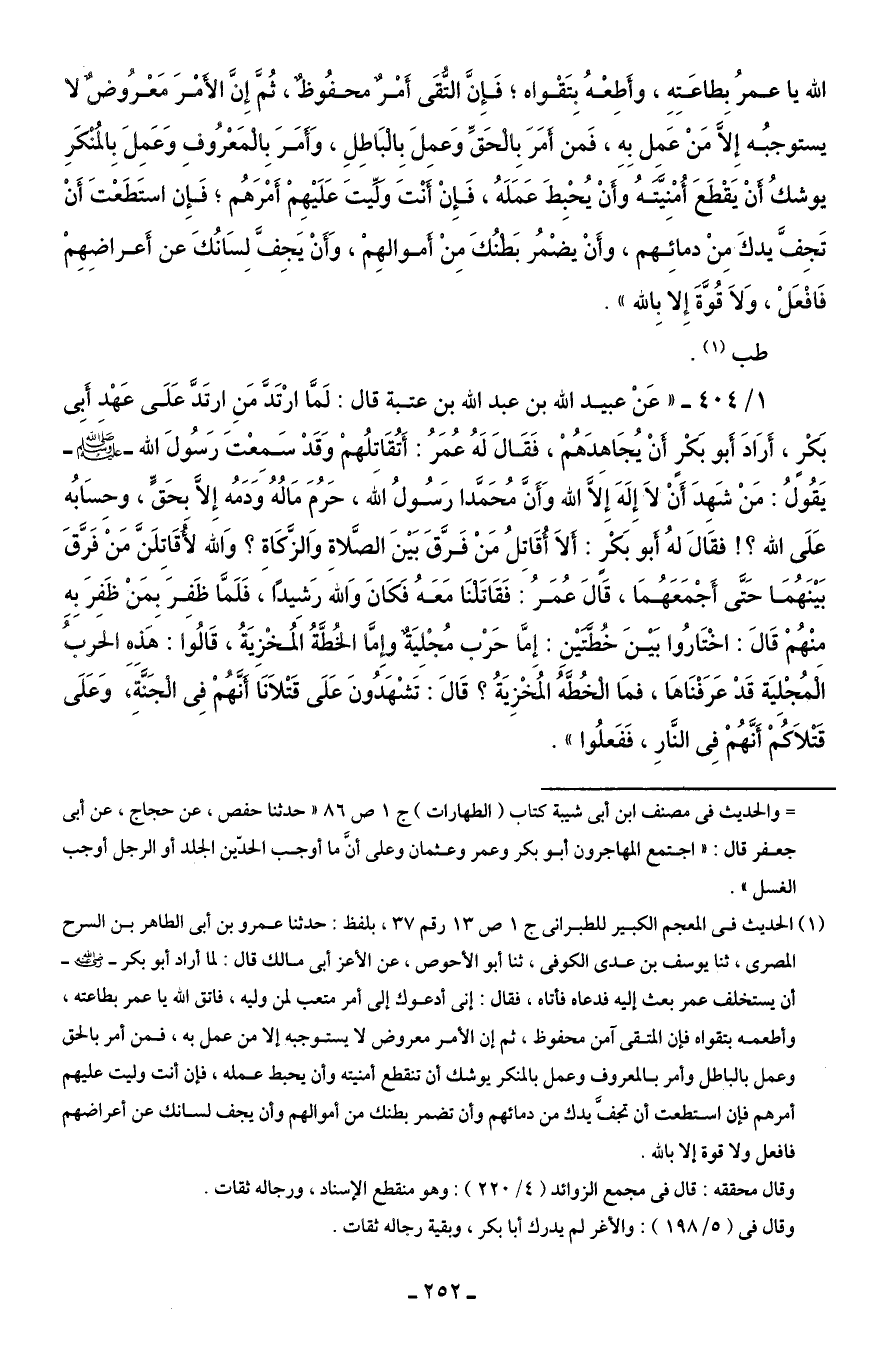 الله يا عمرُ بطاعَتِه ، وأَطِعْهُ بِتَقْواه ؛ فَإِنَّ التُّقَى أَمْرٌ محفُوظٌ ، ثُمَّ إِنَّ الأَمْرَ مَعْرُوضٌ لا
يستوجبُه إِلاَّ مَنْ عَمِل بِهِ ، فَمن أَمَرَ بِالْحَقِّ وَعَمِلَ بِالْبَاطِلِ ، وَأَمَرَ بِالْمَعْرُوفِ وَعَمِلَ بِالْمُنْكَرِ
يوشكُ أَنْ يَقْطَعَ أُمْنِيَّتَهُ وأَنْ يُحْبِطَ عَمَلَهُ ، فَإِنْ أَنْتَ وَلِّيتَ عَلَيْهِمْ أَمْرَهُم ؛ فَإِن استَطَعْتَ أَنْ
تَجِفَّ يدكَ مِنْ دمائِهِم ، وأَنْ يضْمُر بَطْنُكَ مِنْ أموالهِمْ ، وَأَنْ يَجِفَّ لِسَانُكَ عن أعراضِهِمْ
فَافْعَلْ ، وَلاَ قُوَّةَ إِلا بِالله » .
طب (١) .
١/ ٤٠٤ ـ « عَنْ عبيد الله بن عبد الله بن عتبة قال : لَمَّا ارْتَدَّ مَنِ ارتَدَّ عَلَى عَهْدِ أَبِى
بَكْرٍ ، أَرَادَ أَبو بَكْرٍ أَنْ يُجَاهِدَهُمْ ، فَقَالَ لَهُ عُمَرُ : أَتُقَاتِلُهُمْ وَقَدْ سَمِعْتَ رَسُولَ الله ـ ﷺ ـ
يَقُولُ : مَنْ شَهِدَ أَنْ لاَ إِلَهَ إِلاَّ الله وَأَنَّ مُحَمَّدا رَسُولُ الله ، حَرُمَ مَالُهُ وَدَمُه إِلاَّ بِحَقٍّ ، وحِسَابُه
عَلَى الله ؟! فقَالَ لهُ أبو بَكْرٍ : أَلاَ أُقَاتِلُ مَنْ فَرَّقَ بَيْنَ الصَّلاة وَالزَّكَاة ؟ وَالله لأُقَاتِلَنَّ مَنْ فَرَّقَ
بَيْنَهُمَا حَتَّى أَجْمَعَهُمَا ، قَالَ عُمَرُ : فَقَاتَلْنَا مَعَهُ فَكَانَ وَالله رَشِيدًا ، فَلَمَّا ظَفِرَ بِمَنْ ظَفِرَ بِهِ
مِنْهُمْ قَالَ : اخْتَارُوا بَيْنَ خُطَّتَيْنِ : إِمَّا حَرْب مُجْلِيَةٌ وإِمَّا الخُطَّةُ المُخْزِيَةُ ، قَالُوا : هَذِه الحربُ
الْمُجْلِيَة قَدْ عَرَفْنَاهَا ، فما الْخطَّهُ الْمُخْزِيَةُ ؟ قَالَ : تَشْهَدُونَ عَلَى قَتْلاَنَا أَنَّهُمْ فِى الْجَنَّةِ، وَعَلَى
قَتْلاَكُمْ أَنَّهُمْ فِى النَّارِ ، فَفَعلُوا » .
= والحديث فى مصنف ابن أبى شيبة كتاب ( الطهارات ) ج ١ ص ٨٦ « حدثنا حفص ، عن حجاج ، عن أبى
جعفر قال : « اجتمع المهاجرون أبو بكر وعمر وعثمان وعلى أنَّ ما أوجب الحدّين الجلد أو الرجل أوجب
الغسل » .
(١) الحديث فى المعجم الكبير للطبرانى ج ١ ص ١٣ رقم ٣٧ ، بلفظ : حدثنا عمرو بن أبى الطاهر بن السرح
المصرى ، ثنا يوسف بن عدى الكوفى ، ثنا أبو الأحوص ، عن الأعز أبى مالك قال : لما أراد أبو بكر ـ رضي الله عنه ـ
أن يستخلف عمر بعث إليه فدعاه فأتاه ، فقال : إنى أدعوك إلى أمر متعب لمن وليه ، فاتق الله يا عمر بطاعته ،
وأطعمه بتقواه فإن المتقى آمن محفوظ ، ثم إن الأمر معروض لا يستوجبه إلا من عمل به ، فمن أمر بالحق
وعمل بالباطل وأمر بالمعروف وعمل بالمنكر يوشك أن تنقطع أمنيته وأن يحبط عمله ، فإن أنت وليت عليهم
أمرهم فإن استطعت أن تجفَّ يدك من دمائهم وأن تضمر بطنك من أموالهم وأن يجف لسانك عن أعراضهم
فافعل ولا قوة إلا بالله .
وقال محققه : قال فى مجمع الزوائد ( ٤/ ٢٢٠ ) : وهو منقطع الإسناد ، ورجاله ثقات .
وقال فى ( ٥/ ١٩٨ ) : والأغر لم يدرك أبا بكر ، وبقية رجاله ثقات .
ـ ٢٥٢ ـ